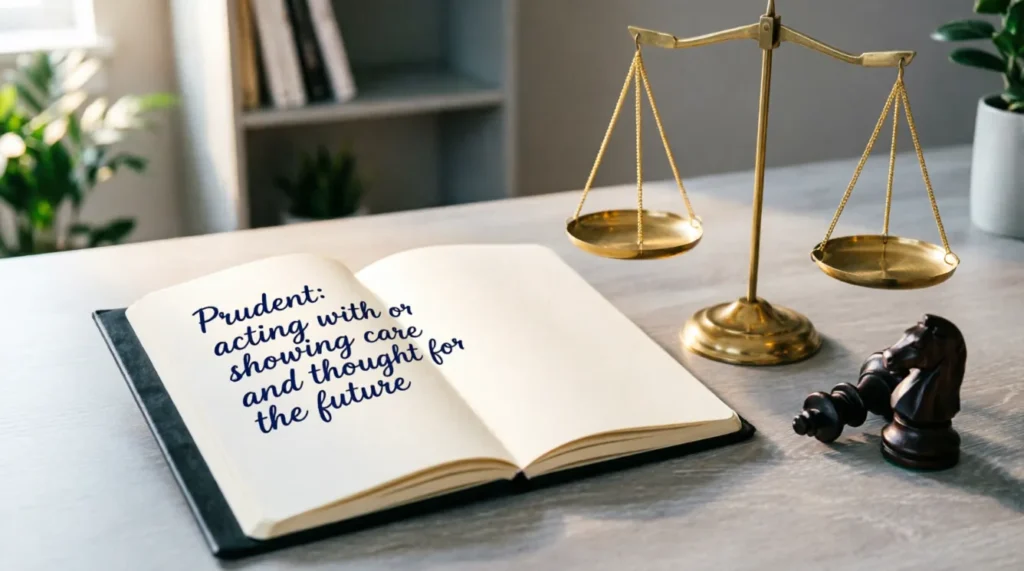 Prudent:
acting with or
showing care
and thought for
the future